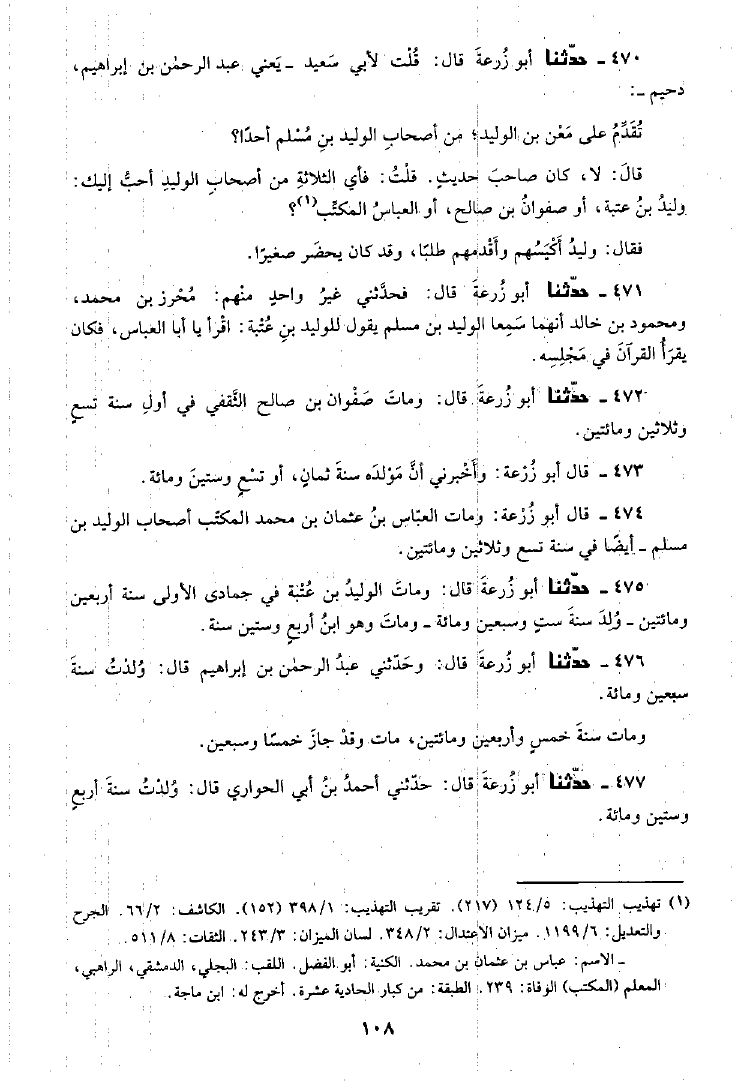 ٤٧٠ ـ حدّثنا أبو زُرعةَ قال: قُلْت لأبي سَعيد ـ يَعني عبد الرحمٰن بن إبراهيم،
دحيم ـ:
تُقَدِّمُ على مَعْن بن الوليد؛ من أصحاب الوليد بنِ مُسْلم أحدًا؟
قالَ: لا، كان صاحبَ حديثٍ. قلتُ: فأي الثلاثةِ من أصحابِ الوليدِ أحبُّ إليك:
وليدُ بنُ عتبة، أو صفوانُ بن صالح، أو العباسُ المكتَّب(١)؟
فقال: وليدُ أكْيَسُهم وأَقْدمهم طلبًا، وقد كان يحضَر صغيرًا.
٤٧١ ـ حدّثنا أبو زُرعةَ قال: فحدَّثني غيرُ واحدٍ منْهم: مُحْرز بن محمد،
ومحمود بن خالد أنهما سَمِعا الوليد بن مسلم يقول للوليد بنِ عُتْبة: اقْرأ يا أبا العباس، فكان
يقرَأُ القرآنَ في مَجْلِسِه.
٤٧٢ ـ حدّثنا أبو زُرعةَ قال: وماتَ صَفْوان بن صالح الثَّقفي في أولِ سنة تسعٍ
وثلاثين ومائتين.
٤٧٣ ـ قال أبو زُرْعة: وأَخْبرني أنَّ مَوْلدَه سنةَ ثمانٍ، أو تسْعٍ وستينَ ومائة.
٤٧٤ ـ قال أبو زُرْعة: ومات العبّاس بنُ عثمان بن محمد المكتّب أصحاب الوليد بن
مسلم ـ أيضًا في سنة تسع وثلاثين ومائتين.
٤٧٥ ـ حدّثنا أبو زُرعةَ قال: وماتَ الوليدُ بن عُتْبة في جمادى الأولى سنة أربعين
ومائتين ـ وُلِدَ سنةَ ستٍ وسبعين ومائة ـ وماتَ وهو ابنُ أربعٍ وستين سنة.
٤٧٦ ـ حدّثنا أبو زُرعةَ قال: وحَدّثني عبدُ الرحمٰن بن إبراهيم قال: وُلدْتُ سنةَ
سبعين ومائة.
ومات سنةَ خمسٍ وأربعين ومائتين، مات وقدْ جازَ خمسًا وسبعين.
٤٧٧ ـ حدّثنا أبو زُرعةَ قال: حدّثني أحمدُ بنُ أبي الحواري قال: وُلدْتُ سنةَ أربعٍ
وستين ومائة.
(١) تهذيب التهذيب: ١٢٤/٥ (٢١٧). تقريب التهذيب: ٣٩٨/١ (١٥٢). الكاشف: ٦٦/٢. الجرح
والتعديل: ١١٩٩/٦. ميزان الاعتدال: ٣٤٨/٢. لسان الميزان: ٢٤٣/٣. الثقات: ٥١١/٨.
ـ الاسم: عباس بن عثمان بن محمد. الكنية: أبو الفضل. اللقب: البجلي، الدمشقي، الراهبي،
المعلم (المكتب) الوفاة: ٢٣٩. الطبقة: من كبار الحادية عشرة. أخرج له: ابن ماجة.
١٠٨